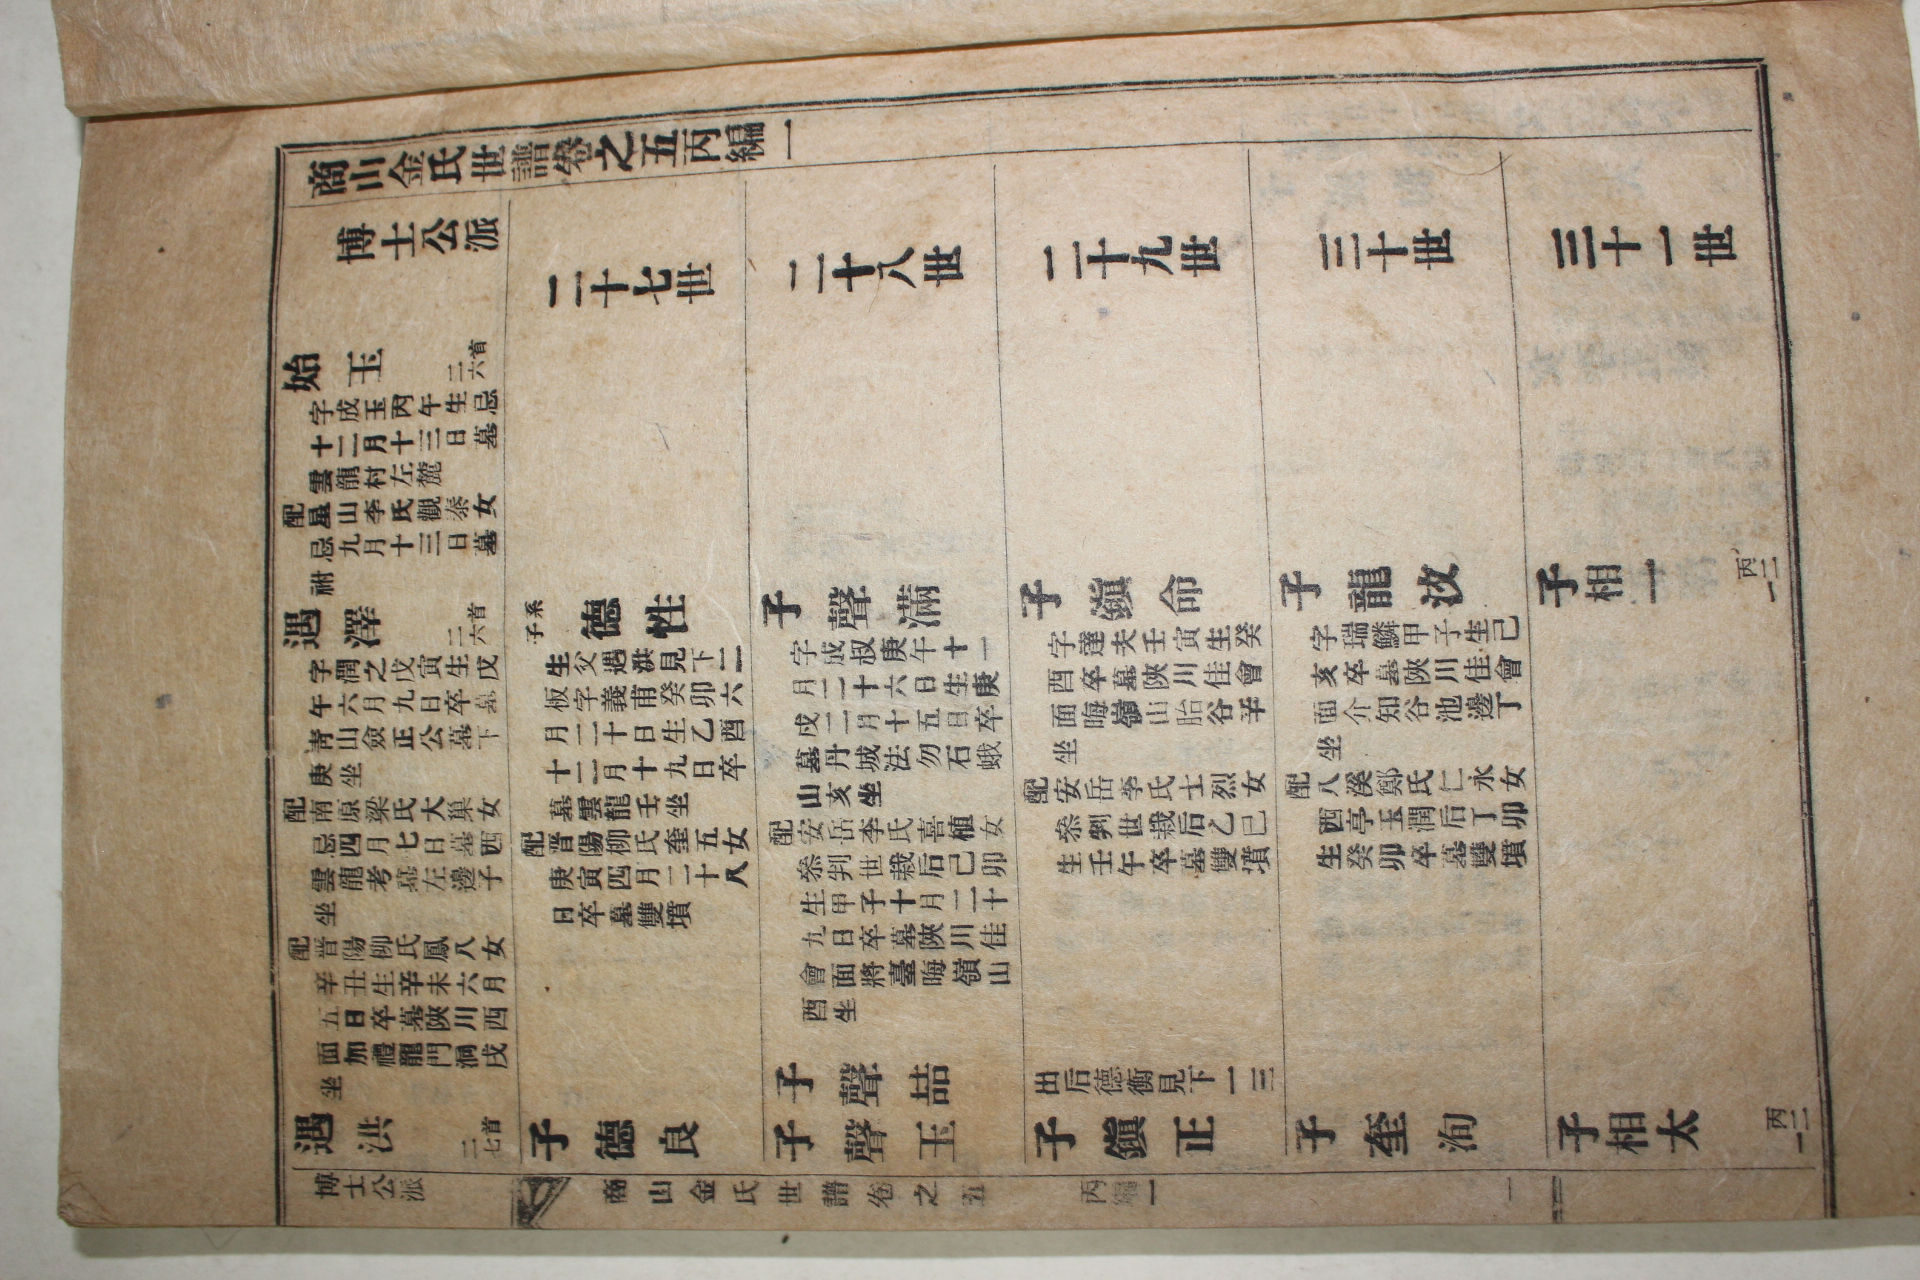 商山金氏世譜卷之五丙編一
博士公派
始玉 二六首
字成玉丙午生忌
十二月十三日墓
雲龍村左麓
配星山李氏觀泰女
忌九月十三日墓
祔
遇澤 二六首
字潤之戊寅生戊
午六月九日卒墓
靑山僉正公墓下
庚坐
配南原梁氏大巢女
忌四月七日墓西
雲龍考墓左邊子
坐
配晋陽柳氏鳳八女
辛丑生辛未六月
五日卒墓陜川西
面加禮龍門洞戌
坐
遇洪 二七首
二十七世
系子德性
生父遇洪見下二
板字義甫癸卯六
月二十日生乙酉
十二月十九日卒
墓雲龍壬坐
配晋陽柳氏奎五女
庚寅四月二十八
日卒墓雙墳
子德良
二十八世
子聲滿
字成叔庚午十一
月二十六日生庚
戌二月十五日卒
墓丹城法勿石蛾
山亥坐
配安岳李氏喜植女
叅判世栽后己卯
生甲子十月二十
九日卒墓陜川佳
會面將臺晦嶺山
酉坐
子聲喆
子聲玉
二十九世
子鎭命
字達夫壬寅生癸
酉卒墓陜川佳會
面晦嶺山胎谷辛
坐
配安岳李氏士烈女
叅判世栽后乙巳
生壬午卒墓雙墳
出后德衡見下一三
子鎭正
三十世
子龍汝
字瑞鱗甲子生己
亥卒墓陜川佳會
面介知谷池邊丁
坐
配八溪鄭氏仁永女
西亭玉潤后丁卯
生癸卯卒墓雙墳
子奎洵
三十一世
子相一 丙一二
子相太 丙一二
博士公派
商山金氏世譜卷之五
丙編一
一